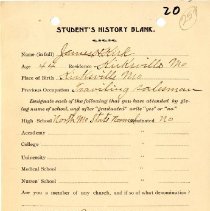 20
20
STUDENT'S HISTORY BLANK.
Name (in full) James Kirk
Age 44 Residence Kirksville Mo
Place of Birth Kirksville Mo
Previous Occupation Traveling Salesman
Designate each of the following that you have attended by giving name of school, and after "graduated" write "yes" or "no."
High School North Mo State Normal Graduated no
Academy
College
University
Medical School
Nurses School
Are you a member of any church, and if so of what denomination?